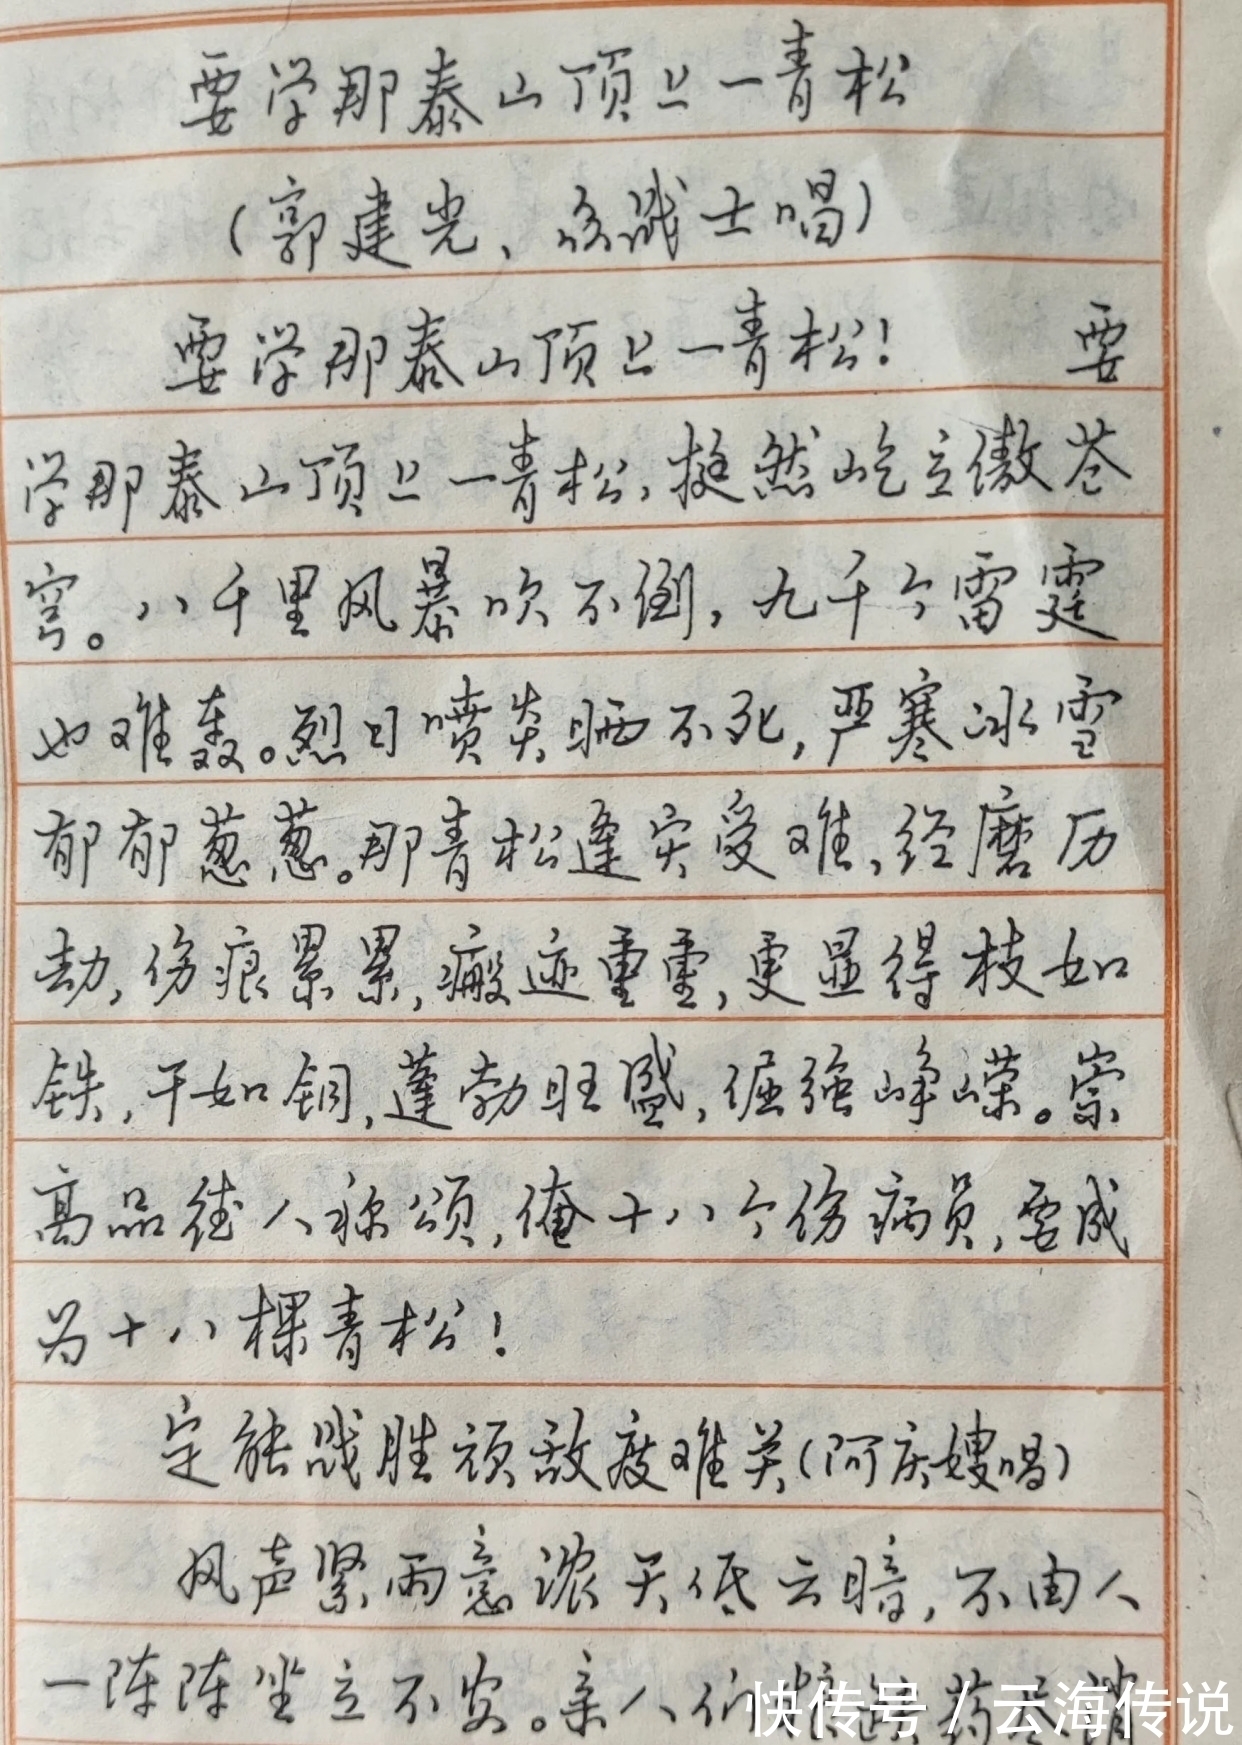 要学那泰山顶上一青松
(郭建光、众战士唱)
要学那泰山顶上一青松! 要
学那泰山顶上一青松,挺然屹立傲苍
穹。八千里风暴吹不倒,九千个雷霆
也难轰。烈日喷炎晒不死,严寒冰雪
郁郁葱葱。那青松逢灾受难,经磨历
劫,伤痕累累,瘢迹重重,更显得枝如
铁,干如铜,蓬勃旺盛,倔强峥嵘。崇
高品德人称颂,俺十八个伤病员,要成
为十八棵青松!
定能战胜顽敌度难关(阿庆嫂唱)
风声紧雨意浓天低云暗,不由人
一阵阵坐立不安。亲人们粮缺药尽消
快传号/云海传说